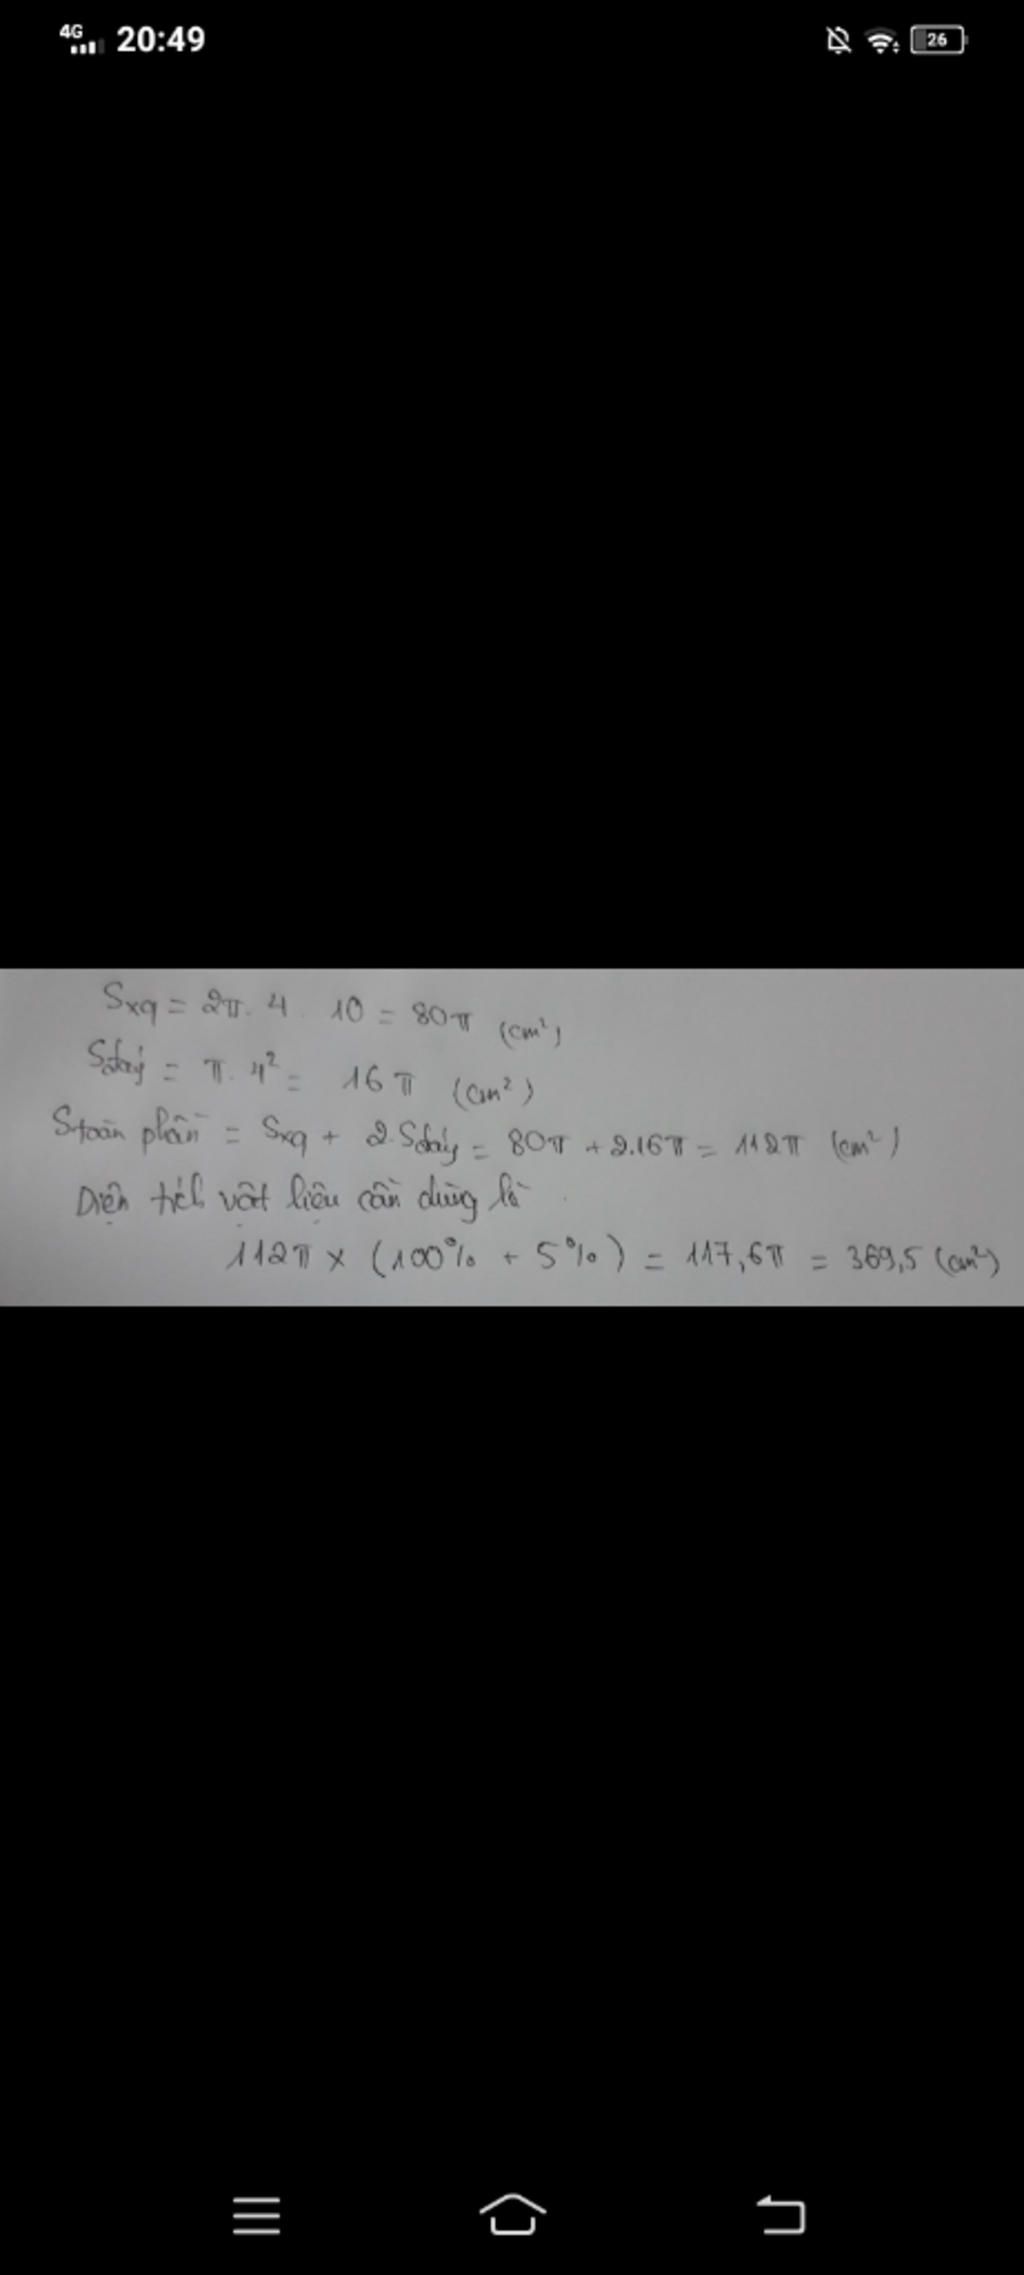 4G 20:49 26
Sxq = 2π. 4. 10 = 80π (cm²)
Sđáy = π. 4² = 16π (cm²)
Stoàn phần = Sxq + 2.Sđáy = 80π + 2.16π = 112π (cm²)
Diện tích vật liệu cần dùng là
112π x (100% + 5%) = 117,6π = 369,5 (cm²)